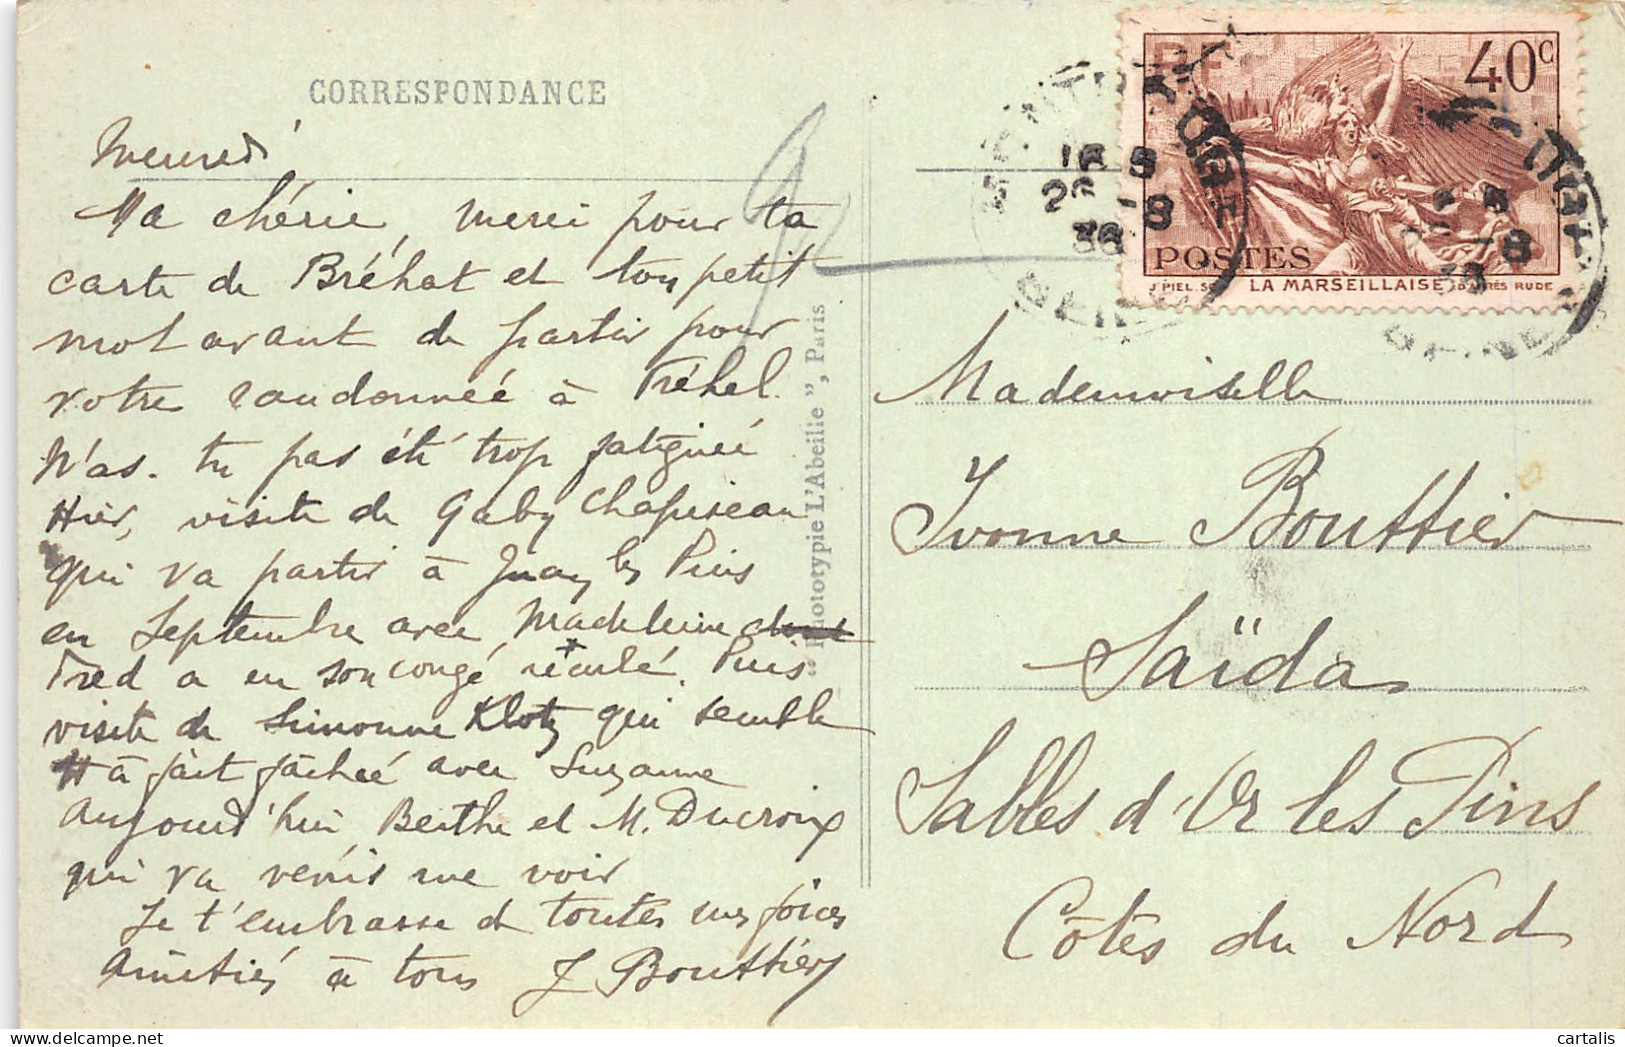 CORRESPONDANCE
Mercredi
Ma chérie, merci pour ta
carte de Bréhat et ton petit
mot avant de partir pour
votre randonnée à Fréhel.
N'as-tu pas été trop fatiguée
Hier, visite de Gaby
qui va partir à Juan les Pins
en Septembre avec Madeleine
Fred a eu son congé reculé. Puis
visite de Simonne Klotz qui semble
à fait fâchée avec Suzanne
Aujourd'hui Berthe et M. Ducroix
qui va venir me voir
Je t'embrasse de toutes mes forces
Amitiés à tous J Bouttier
"Phototypie L'Abeille", Paris
RF 40c
POSTES
J. PIEL. SC LA MARSEILLAISE D'APRÈS RUDE
26 -8
36
Mademoiselle
Yvonne Bouttier
Saïda
Sables d'Or les Pins
Côtes du Nord
cartalis